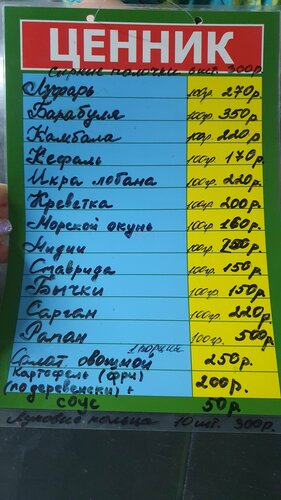 ЦЕННИК
Сырные палочки 6 шт. 300р.
Луфарь 100гр. 270р
Барабуля 100гр. 350р
Камбала 100гр. 220р
Кефаль 100гр. 170р
Икра лобана 100гр. 220р.
Креветка 100гр. 200р.
Морской окунь 100гр. 160р.
Мидии 100гр. 250р.
Ставрида 100гр. 150р
Бычки 100гр. 150р
Сарган 100гр. 220р
Рапан 100гр. 500р
1 порция
Салат овощной 250р.
Картофель (фри)
(по деревенски) 200р.
соус 50р
Луковые кольца 10шт. 300р.